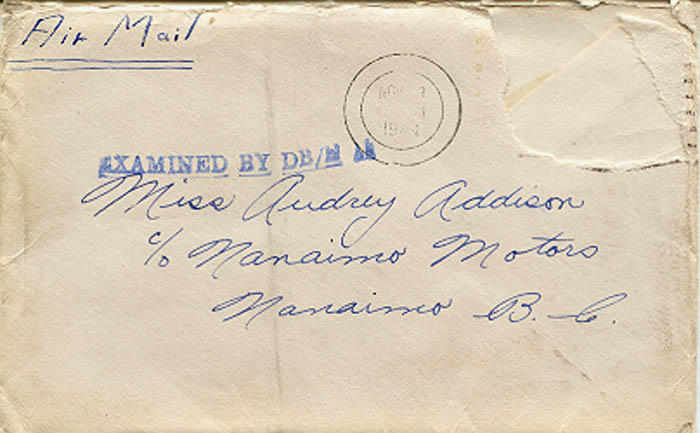 Air Mail
EXAMINED BY DB/
Miss Audrey Addison
c/o Nanaimo Motors
Nanaimo B. C.